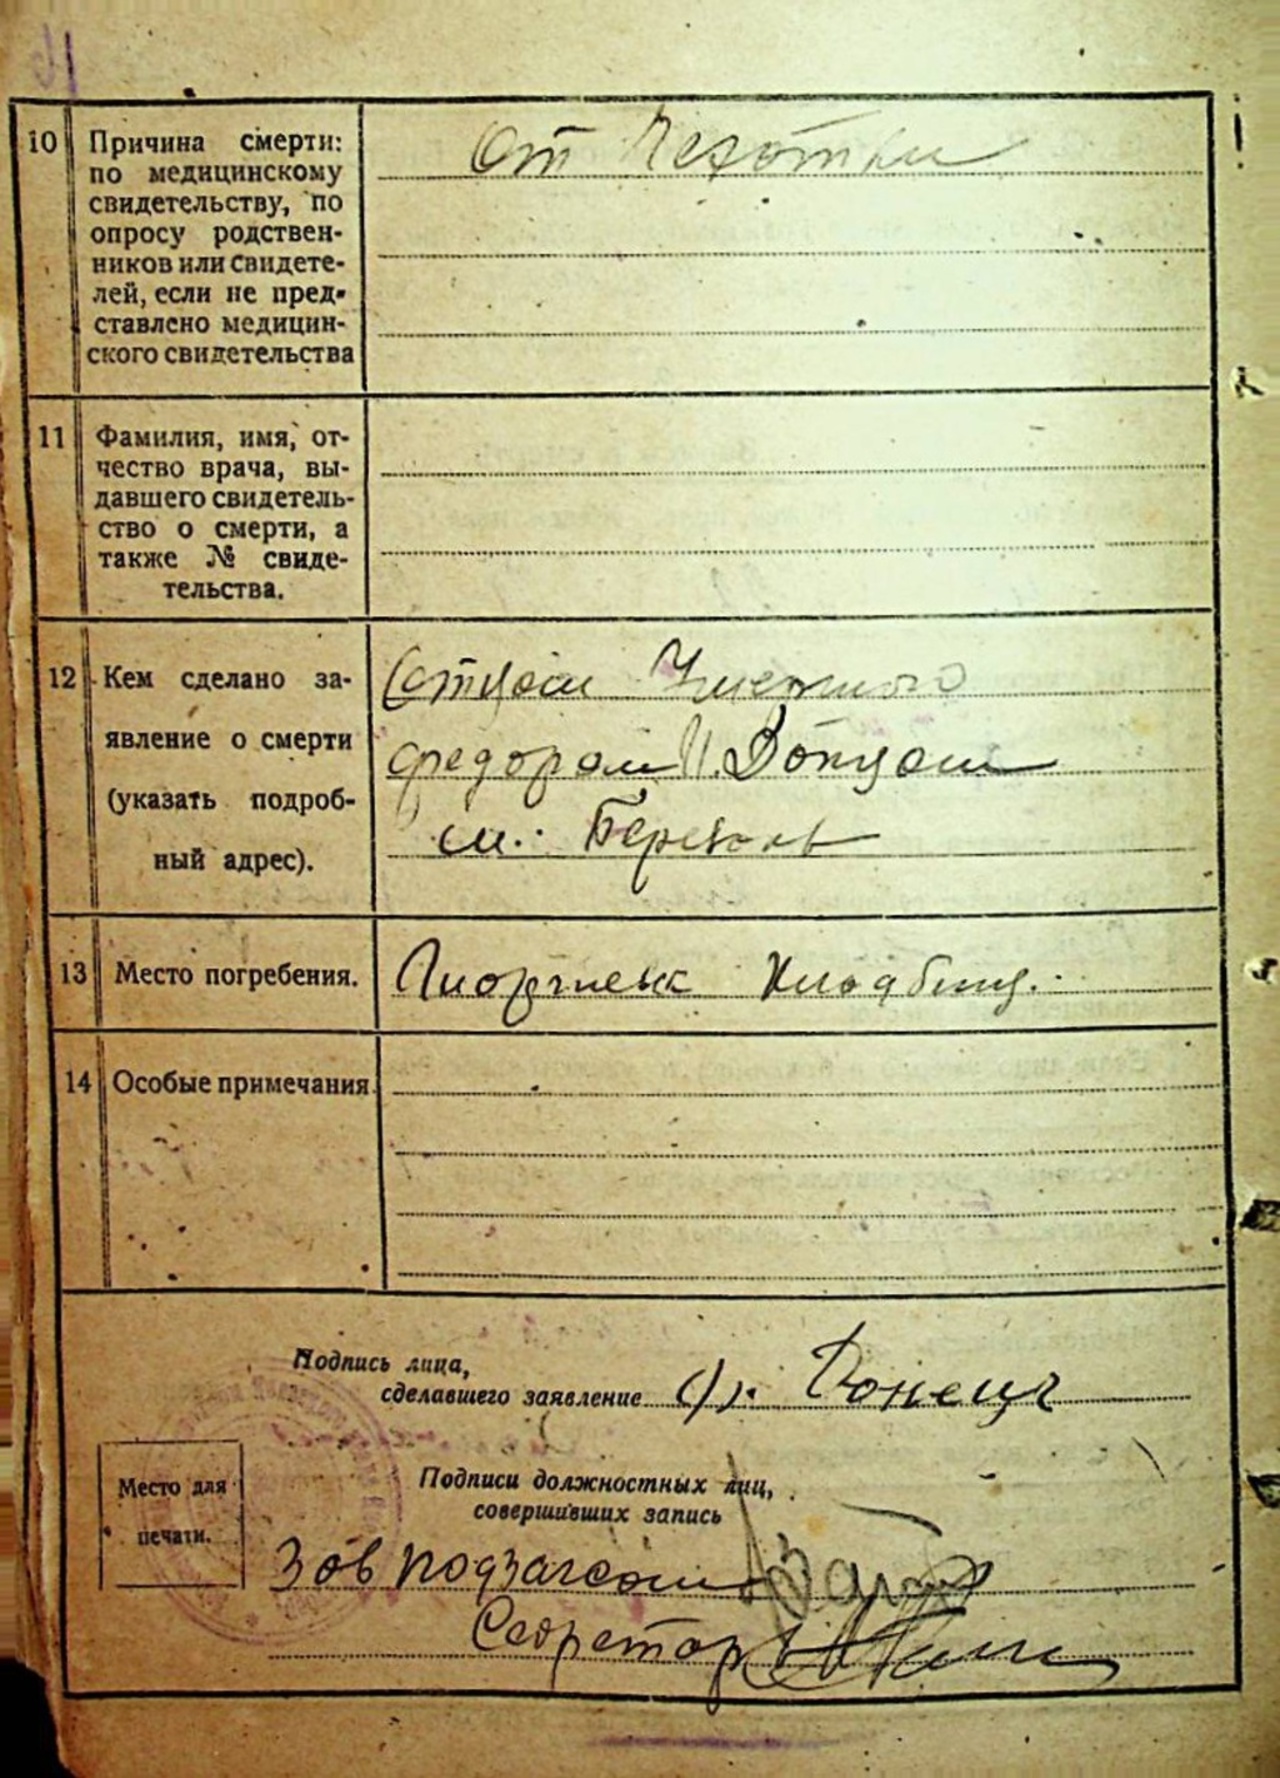 10 Причина смерти:
по медицинскому
свидетельству, по
опросу родствен-
ников или свидете-
лей, если не пред-
ставлено медицин-
ского свидетельства
От
11 Фамилия, имя, от-
чество врача, вы-
давшего свидетель-
ство о смерти, а
также № свиде-
тельства.
12 Кем сделано за-
явление о смерти
(указать подроб-
ный адрес).
Отцом
федором
13 Место погребения.
14 Особые примечания.
Подпись лица,
сделавшего заявление Донец
Место для
печати.
Подписи должностных лиц,
совершивших запись
Зав подзагсом
Секретар